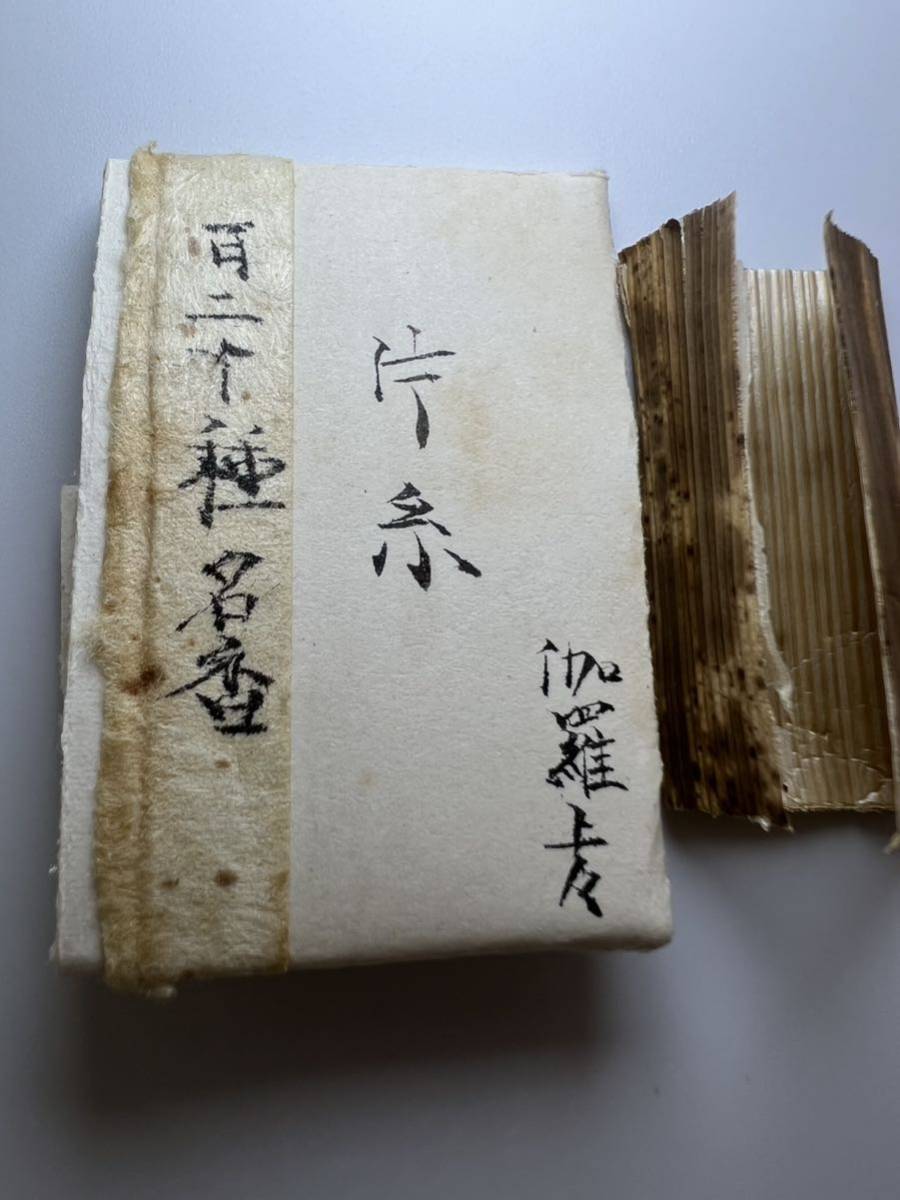 伽羅上々
片糸
百二十種名香